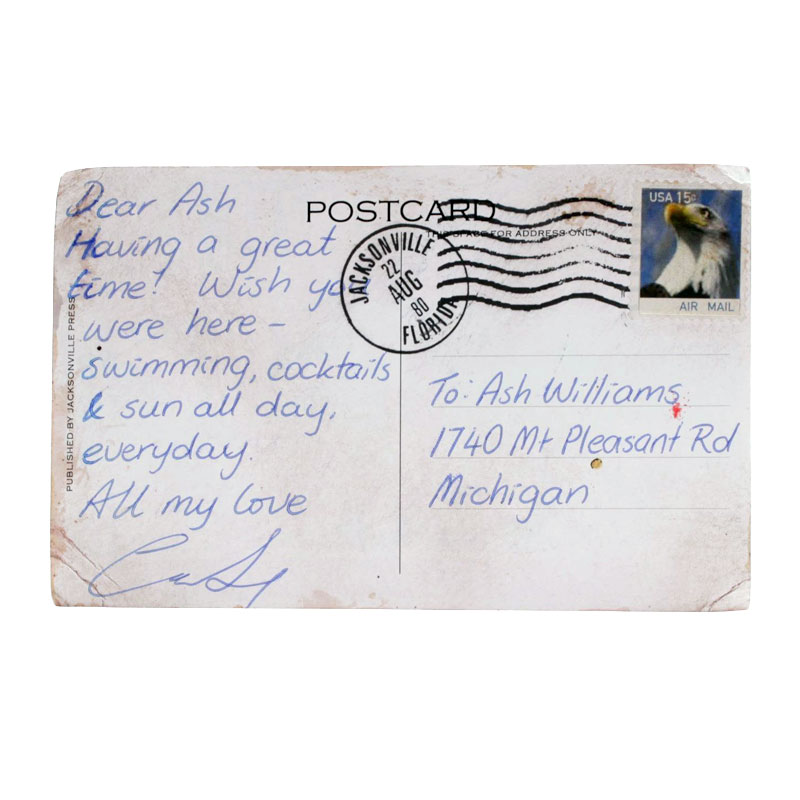 Dear Ash
Having a great
time! Wish you
were here -
swimming, cocktails
& sun all day,
everyday.
All my love
POSTCARD
THIS SPACE FOR ADDRESS ONLY
JACKSONVILLE
22
AUG
80
FLORIDA
USA 15c
AIR MAIL
To: Ash Williams
1740 Mt Pleasant Rd
Michigan
PUBLISHED BY JACKSONVILLE PRESS